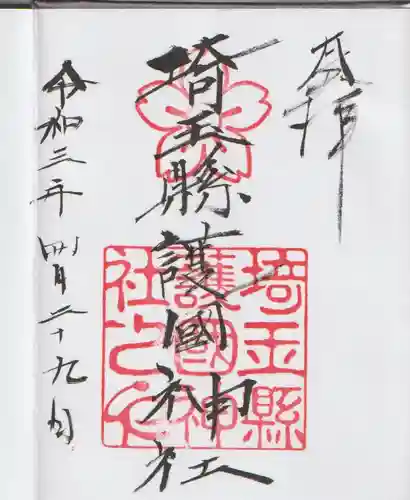 奉拝
埼玉縣護國神社
令和三年 四月二十九日
埼玉縣
護國神
社之印